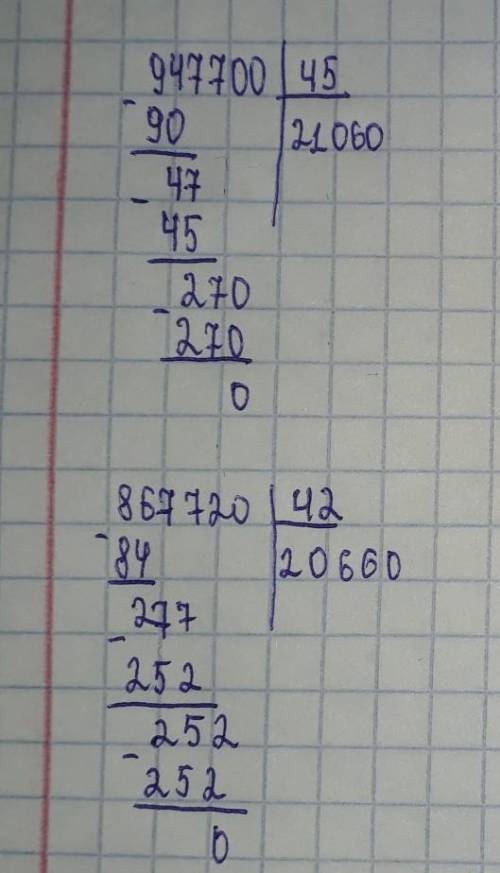 947700 45
- 90 21060
- 47
45
- 270
270
0
867720 42
- 84 20660
- 277
252
- 252
252
0